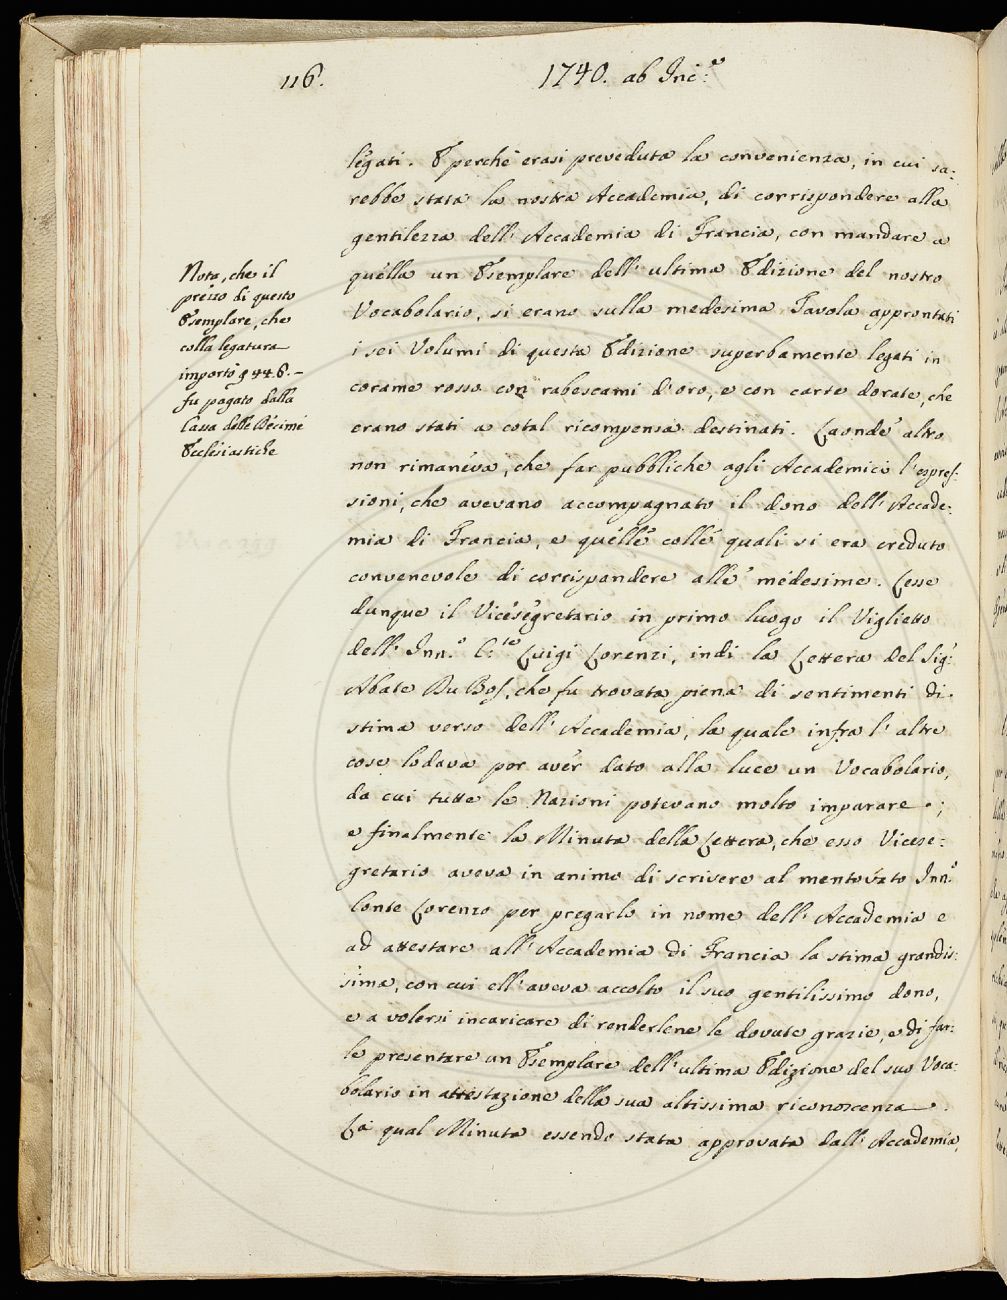 116.
1740. ab Inc.e
legati. E perchè erasi preveduta la convenienza, in cui sa:
rebbe stata la nostra Accademia, di corrispondere alla
gentilezza dell' Accademia di Francia, con mandare a
quella un Esemplare dell' ultima Edizione del nostro
Vocabolario, si erano sulla medesima Tavola approntati
i sei Volumi di questa Edizione superbamente legati in
corame rosso con rabescami d'oro, e con carte dorate, che
erano stati a cotal ricompensa destinati. Laonde altro
non rimaneva, che far pubbliche agli Accademici l'espres:
sioni, che avevano accompagnato il dono dell' Accade:
mia di Francia, e quelle colle quali si era creduto
convenevole di corrispondere alle medesime. Lesse
dunque il Vicesegretario in primo luogo il Viglietto
dell' Inn.o C.te Luigi Lorenzi, indi la Lettera del Sig.r
Abate Du Bos, che fu trovata piena di sentimenti di
stima verso dell' Accademia, la quale infra l' altre
cose lodava por aver dato alla luce un Vocabolario,
da cui tutte le Nazioni potevano molto imparare.;
e finalmente la Minuta della Lettera, che esso Vicese:
gretario aveva in animo di scrivere al mentovato Inn.o
Conte Lorenzo per pregarlo in nome dell' Accademia e
ad attestare all' Accademia di Francia la stima grandis:
sima, con cui ell' aveva accolto il suo gentilissimo dono,
e a volersi incaricare di renderlene le dovute grazie, e di far:
le presentare un Esemplare dell' ultima Edizione del suo Voca:
bolario in attestazione della sua altissima riconoscenza.
La qual Minuta essendo stata approvata dall' Accademia,
Nota, che il
prezzo di questo
Esemplare, che
colla legatura
importò 446.-
fu pagato dalla
Cassa delle Decime
Ecclesiastiche